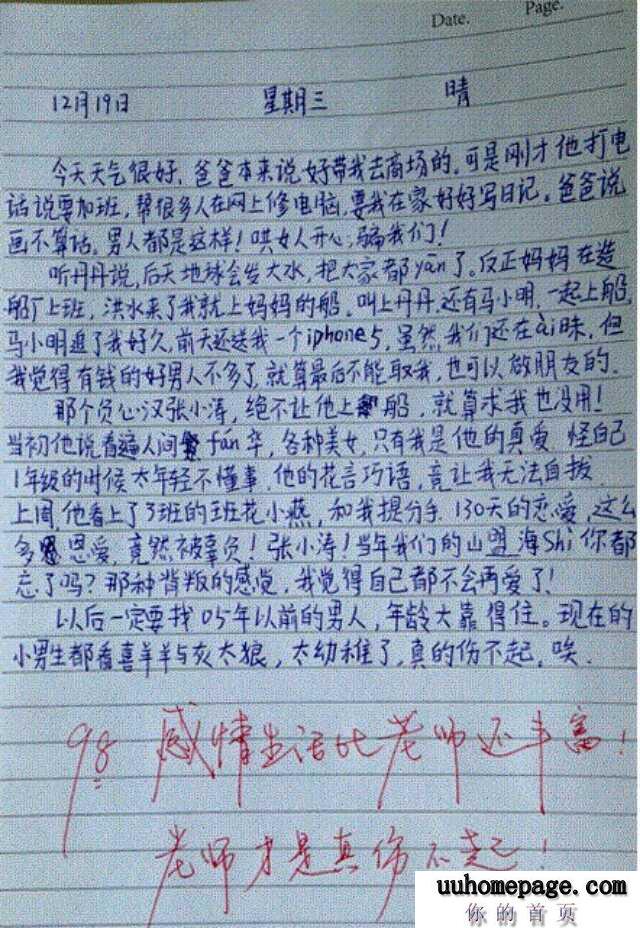 Date.
Page.
12月19日 星期三 晴
今天天气很好，爸爸本来说好带我去商场的，可是刚才他打电
话说要加班，帮很多人在网上修电脑，要我在家好好写日记。爸爸说
画不算话。男人都是这样！哄女人开心，骗我们！
听丹丹说，后天地球会发大水，把大家都yān了。反正妈妈在造
船厂上班，洪水来了我就上妈妈的船，叫上丹丹，还有马小明，一起上船。
马小明追了我好久，前天还送我一个iphone5，虽然我们还在ài昧，但
我觉得有钱的好男人不多了，就算最后不能取我，也可以做朋友的。
那个负心汉张小涛，绝不让他上船，就算求我也没用！
当初他说看遍人间fán华，各种美女，只有我是他的真爱。怪自己
1年级的时候太年轻不懂事，他的花言巧语，竟让我无法自拔。
上周，他看上了3班的班花小燕，和我提分手。130天的恋爱，这么
多恩爱，竟然被辜负！张小涛！当年我们的山盟海Shi你都
忘了吗？那种背叛的感觉，我觉得自己都不会再爱了！
以后一定要找05年以前的男人，年龄大靠得住。现在的
小男生都看喜羊羊与灰太狼，太幼稚了，真的伤不起，唉。
98 感情生活比老师还丰富！
老师才是真伤不起！
uuhomepage.com
你的首页